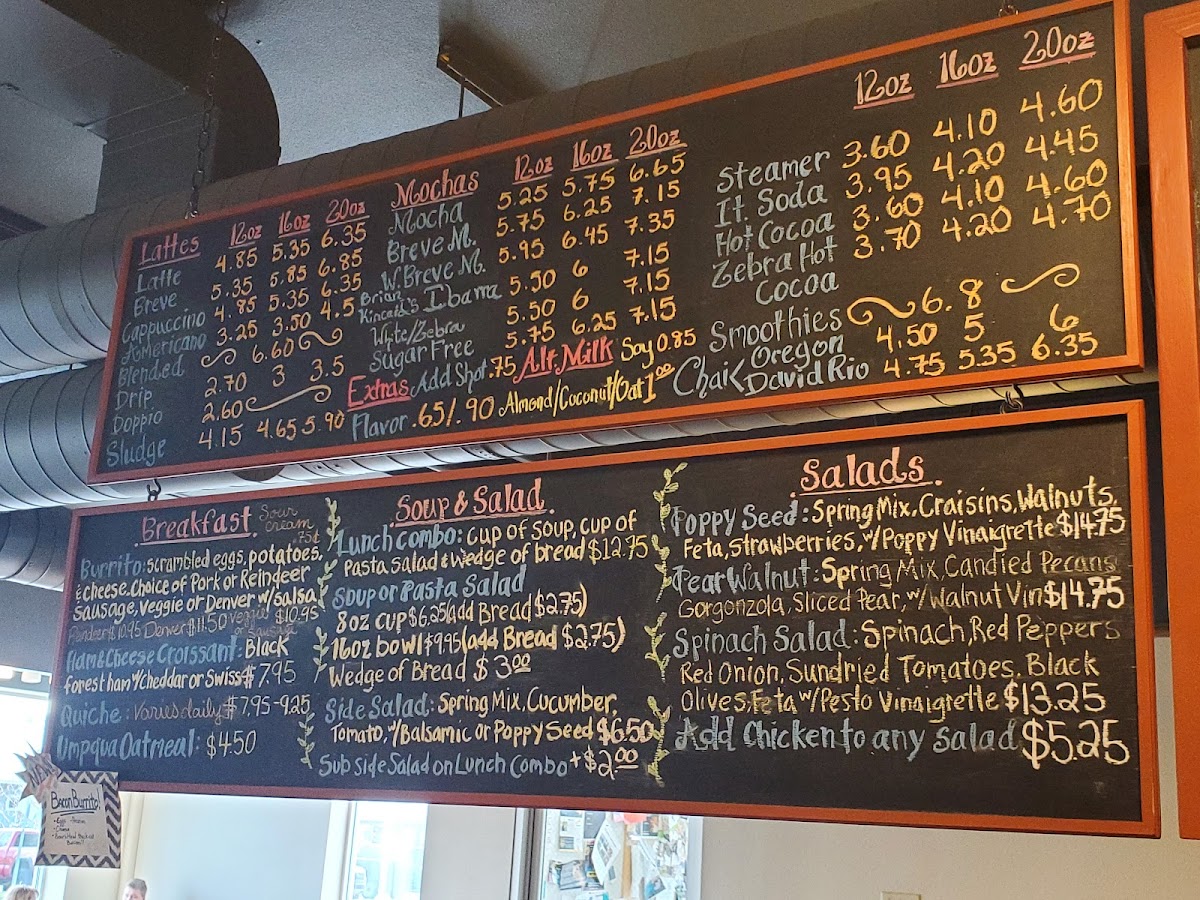 Lattes 12oz 16oz 20oz
Latte 4.85 5.35 6.35
Breve 5.35 5.85 6.85
Cappuccino 4.85 5.35 6.35
Americano 3.25 3.50 4.5
Blended 6.60
Drip 2.70 3 3.5
Doppio 2.60
Sludge 4.15 4.65 5.90
Mochas 12oz 16oz 20oz
Mocha 5.25 5.75 6.65
Breve M. 5.75 6.25 7.15
W. Breve M. 5.95 6.45 7.35
Brian
Kincaid's Ibarra 5.50 6 7.15
Wite/Zebra 5.50 6 7.15
Sugar Free 5.75 6.25 7.15
Extras Add Shot .75
Flavor .65/.90
Alt. Milk Soy 0.85
Almond/Coconut/Oat 1.00
12oz 16oz 20oz
Steamer 3.60 4.10 4.60
It. Soda 3.95 4.20 4.45
Hot Cocoa 3.60 4.10 4.60
Zebra Hot 3.70 4.20 4.70
Cocoa
Smoothies 6.8
Chai < Oregon 4.50 5 6
David Rio 4.75 5.35 6.35
Breakfast Sour
cream
.75¢
Burrito: scrambled eggs, potatoes,
& cheese. Choice of Pork or Reindeer
Sausage, Veggie or Denver w/ Salsa
Reindeer $10.95 Denver $11.50 Veggie or Sausage $10.95
Ham & Cheese Croissant: Black
forest ham w/cheddar or Swiss $7.95
Quiche: Varies daily $7.95-9.25
Umpqua Oatmeal: $4.50
Soup & Salad
Lunch Combo: cup of soup, cup of
Pasta Salad & wedge of bread $12.75
Soup or Pasta Salad
8oz cup $6.25 (add Bread $2.75)
16oz bowl $9.95 (add Bread $2.75)
Wedge of Bread $3.00
Side Salad: Spring Mix, Cucumber,
Tomato, w/Balsamic or Poppy Seed $6.50
Sub side Salad on Lunch Combo +$2.00
Salads
Poppy Seed: Spring Mix, Craisins, Walnuts,
Feta, Strawberries, w/ Poppy Vinaigrette $14.75
Pear Walnut: Spring Mix, Candied Pecans
Gorgonzola, Sliced Pear, w/ Walnut Vin $14.75
Spinach Salad: Spinach, Red Peppers
Red Onion, Sundried Tomatoes, Black
Olives, Feta w/ Pesto Vinaigrette $13.25
Add Chicken to any salad $5.25
Bacon Burrito!